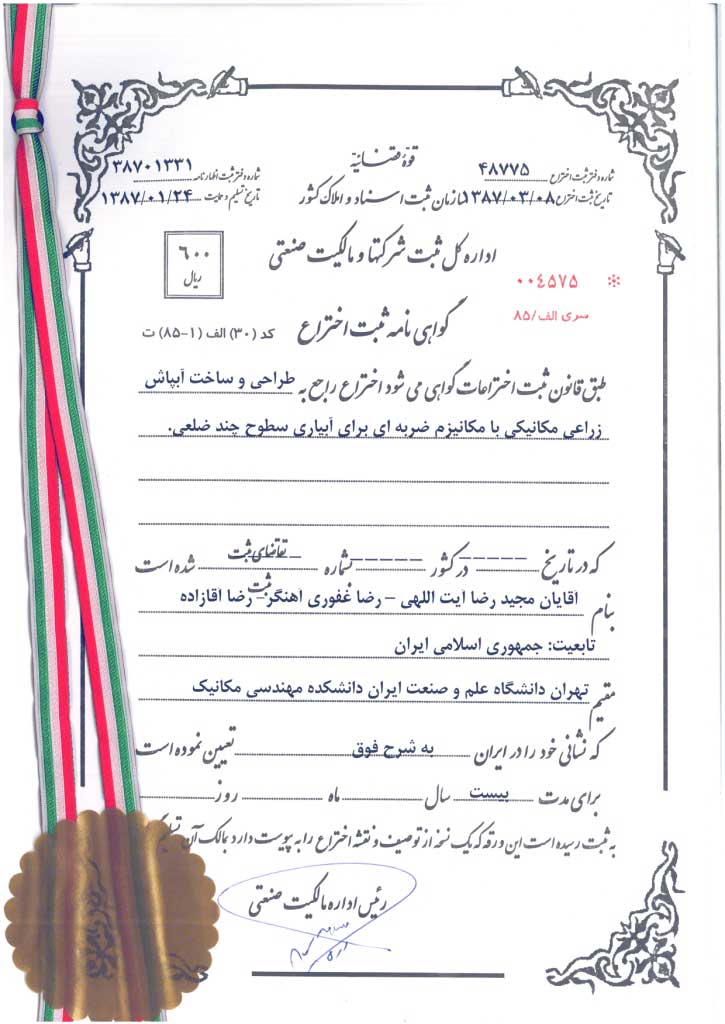 قوهٔ قضائیه
شماره دفتر ثبت اختراع ۴۸۷۷۵
شماره دفتر ثبت اظهارنامه ۳۸۷۰۱۳۳۱
سازمان ثبت اسناد و املاک کشور
تاریخ ثبت اختراع ۱۳۸۷/۰۳/۰۸
تاریخ تسلیم و حمایت ۱۳۸۷/۰۱/۲۴
اداره کل ثبت شرکتها و مالکیت صنعتی
۶۰۰
ریال
* ۰۰۴۵۷۵
سری الف/۸۵
گواهی نامه ثبت اختراع
کد (۳۰) الف (۱-۸۵) ت
طبق قانون ثبت اختراعات گواهی می شود اختراع راجع به طراحی و ساخت آبپاش
زراعی مکانیکی با مکانیزم ضربه ای برای آبیاری سطوح چند ضلعی.
که در تاریخ ----- در کشور ----- بشماره تقاضای ثبت شده است
ثبت
بنام آقایان مجید رضا ایت اللهی – رضا غفوری اهنگر – رضا اقازاده
تابعیت: جمهوری اسلامی ایران
مقیم تهران دانشگاه علم و صنعت ایران دانشکده مهندسی مکانیک
که نشانی خود را در ایران به شرح فوق تعیین نموده است
برای مدت بیست سال ماه روز
به ثبت رسیده است این ورقه که یک نسخه از توصیف و نقشه اختراع را به پیوست دارد بمالک آن
رئیس اداره مالکیت صنعتی